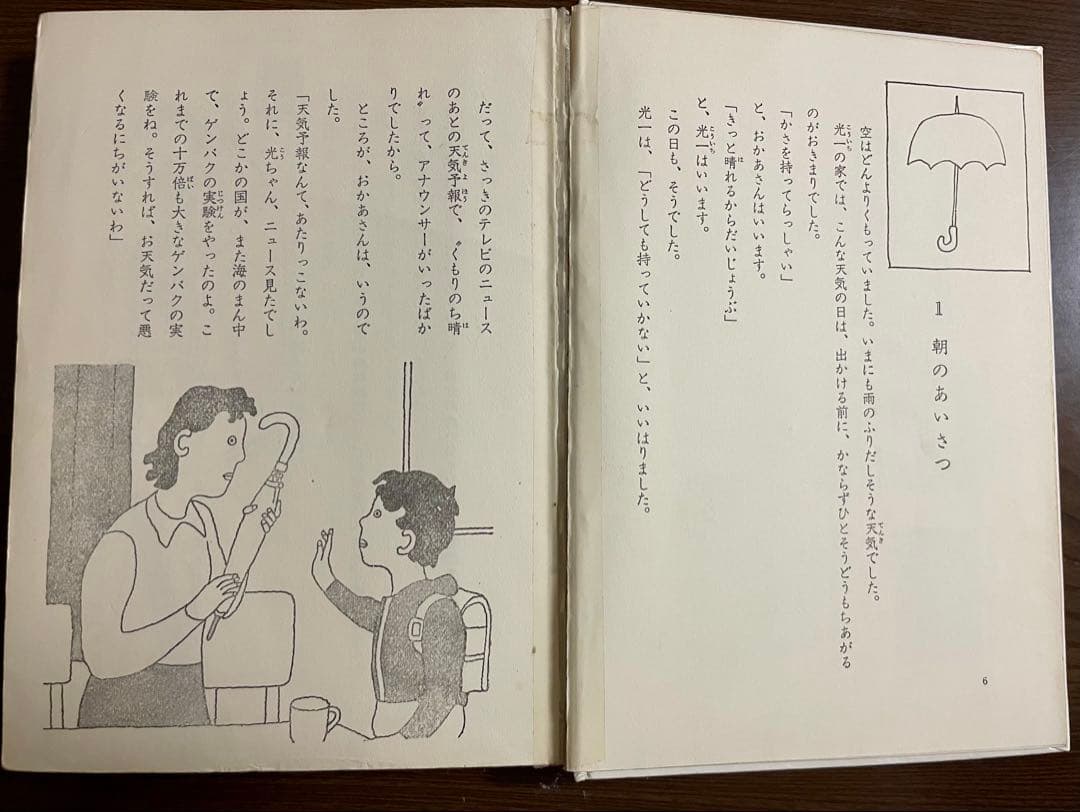 1 朝のあいさつ
空はどんよりくもっていました。いまにも雨のふりだしそうな天気でした。
光一の家では、こんな天気の日は、出かける前に、かならずひとそうどうもちあがる
のがおきまりでした。
「かさを持ってらっしゃい」
と、おかあさんはいいます。
「きっと晴れるからだいじょうぶ」
と、光一はいいます。
この日も、そうでした。
光一は、「どうしても持っていかない」と、いいはりました。
6
だって、さっきのテレビのニュース
のあとの天気予報で、〝くもりのち晴
れ〟って、アナウンサーがいったばか
りでしたから。
ところが、おかあさんは、いうので
した。
「天気予報なんて、あたりっこないわ。
それに、光ちゃん、ニュース見たでし
ょう。どこかの国が、また海のまん中
で、ゲンバクの実験をやったのよ。こ
れまでの十万倍も大きなゲンバクの実
験をね。そうすれば、お天気だって悪
くなるにちがいないわ」